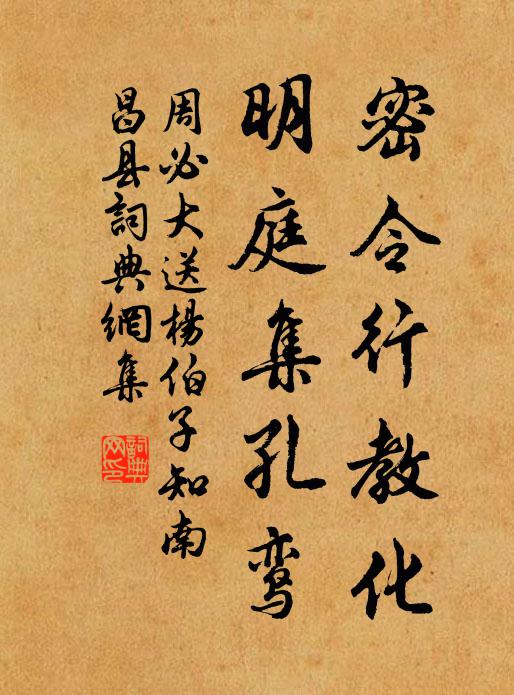 密令行教化
明庭集孔鸾
周必大送杨伯子知南
昌县词典网集
詞典
网印